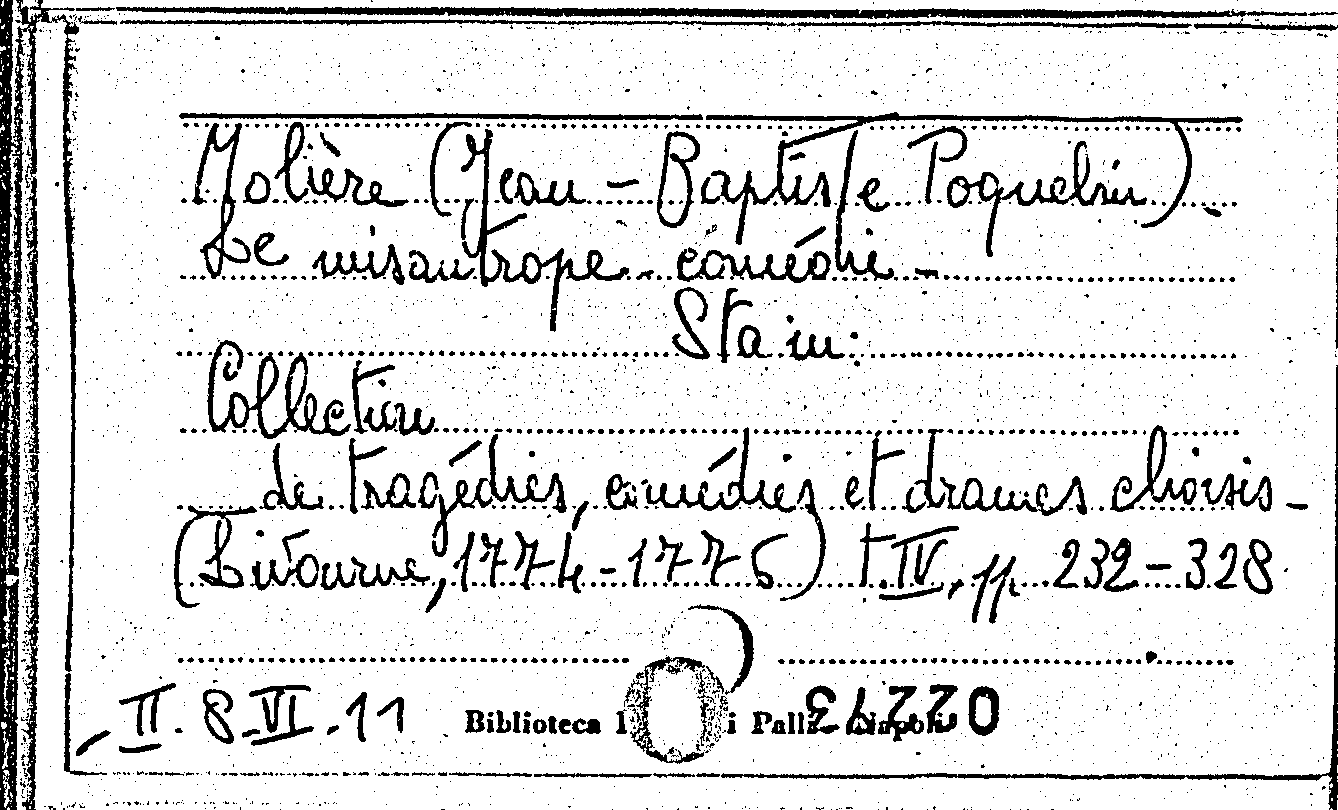 Molière (Jean-Baptiste Poquelin).
Le misantrope - comédie -
Sta in:
Collection
de tragédies, comédies et drames choisis -
(Livourne, 1774-1775) t. IV, pp. 232-328
- II. 8. VI. 11 Biblioteca i Palli